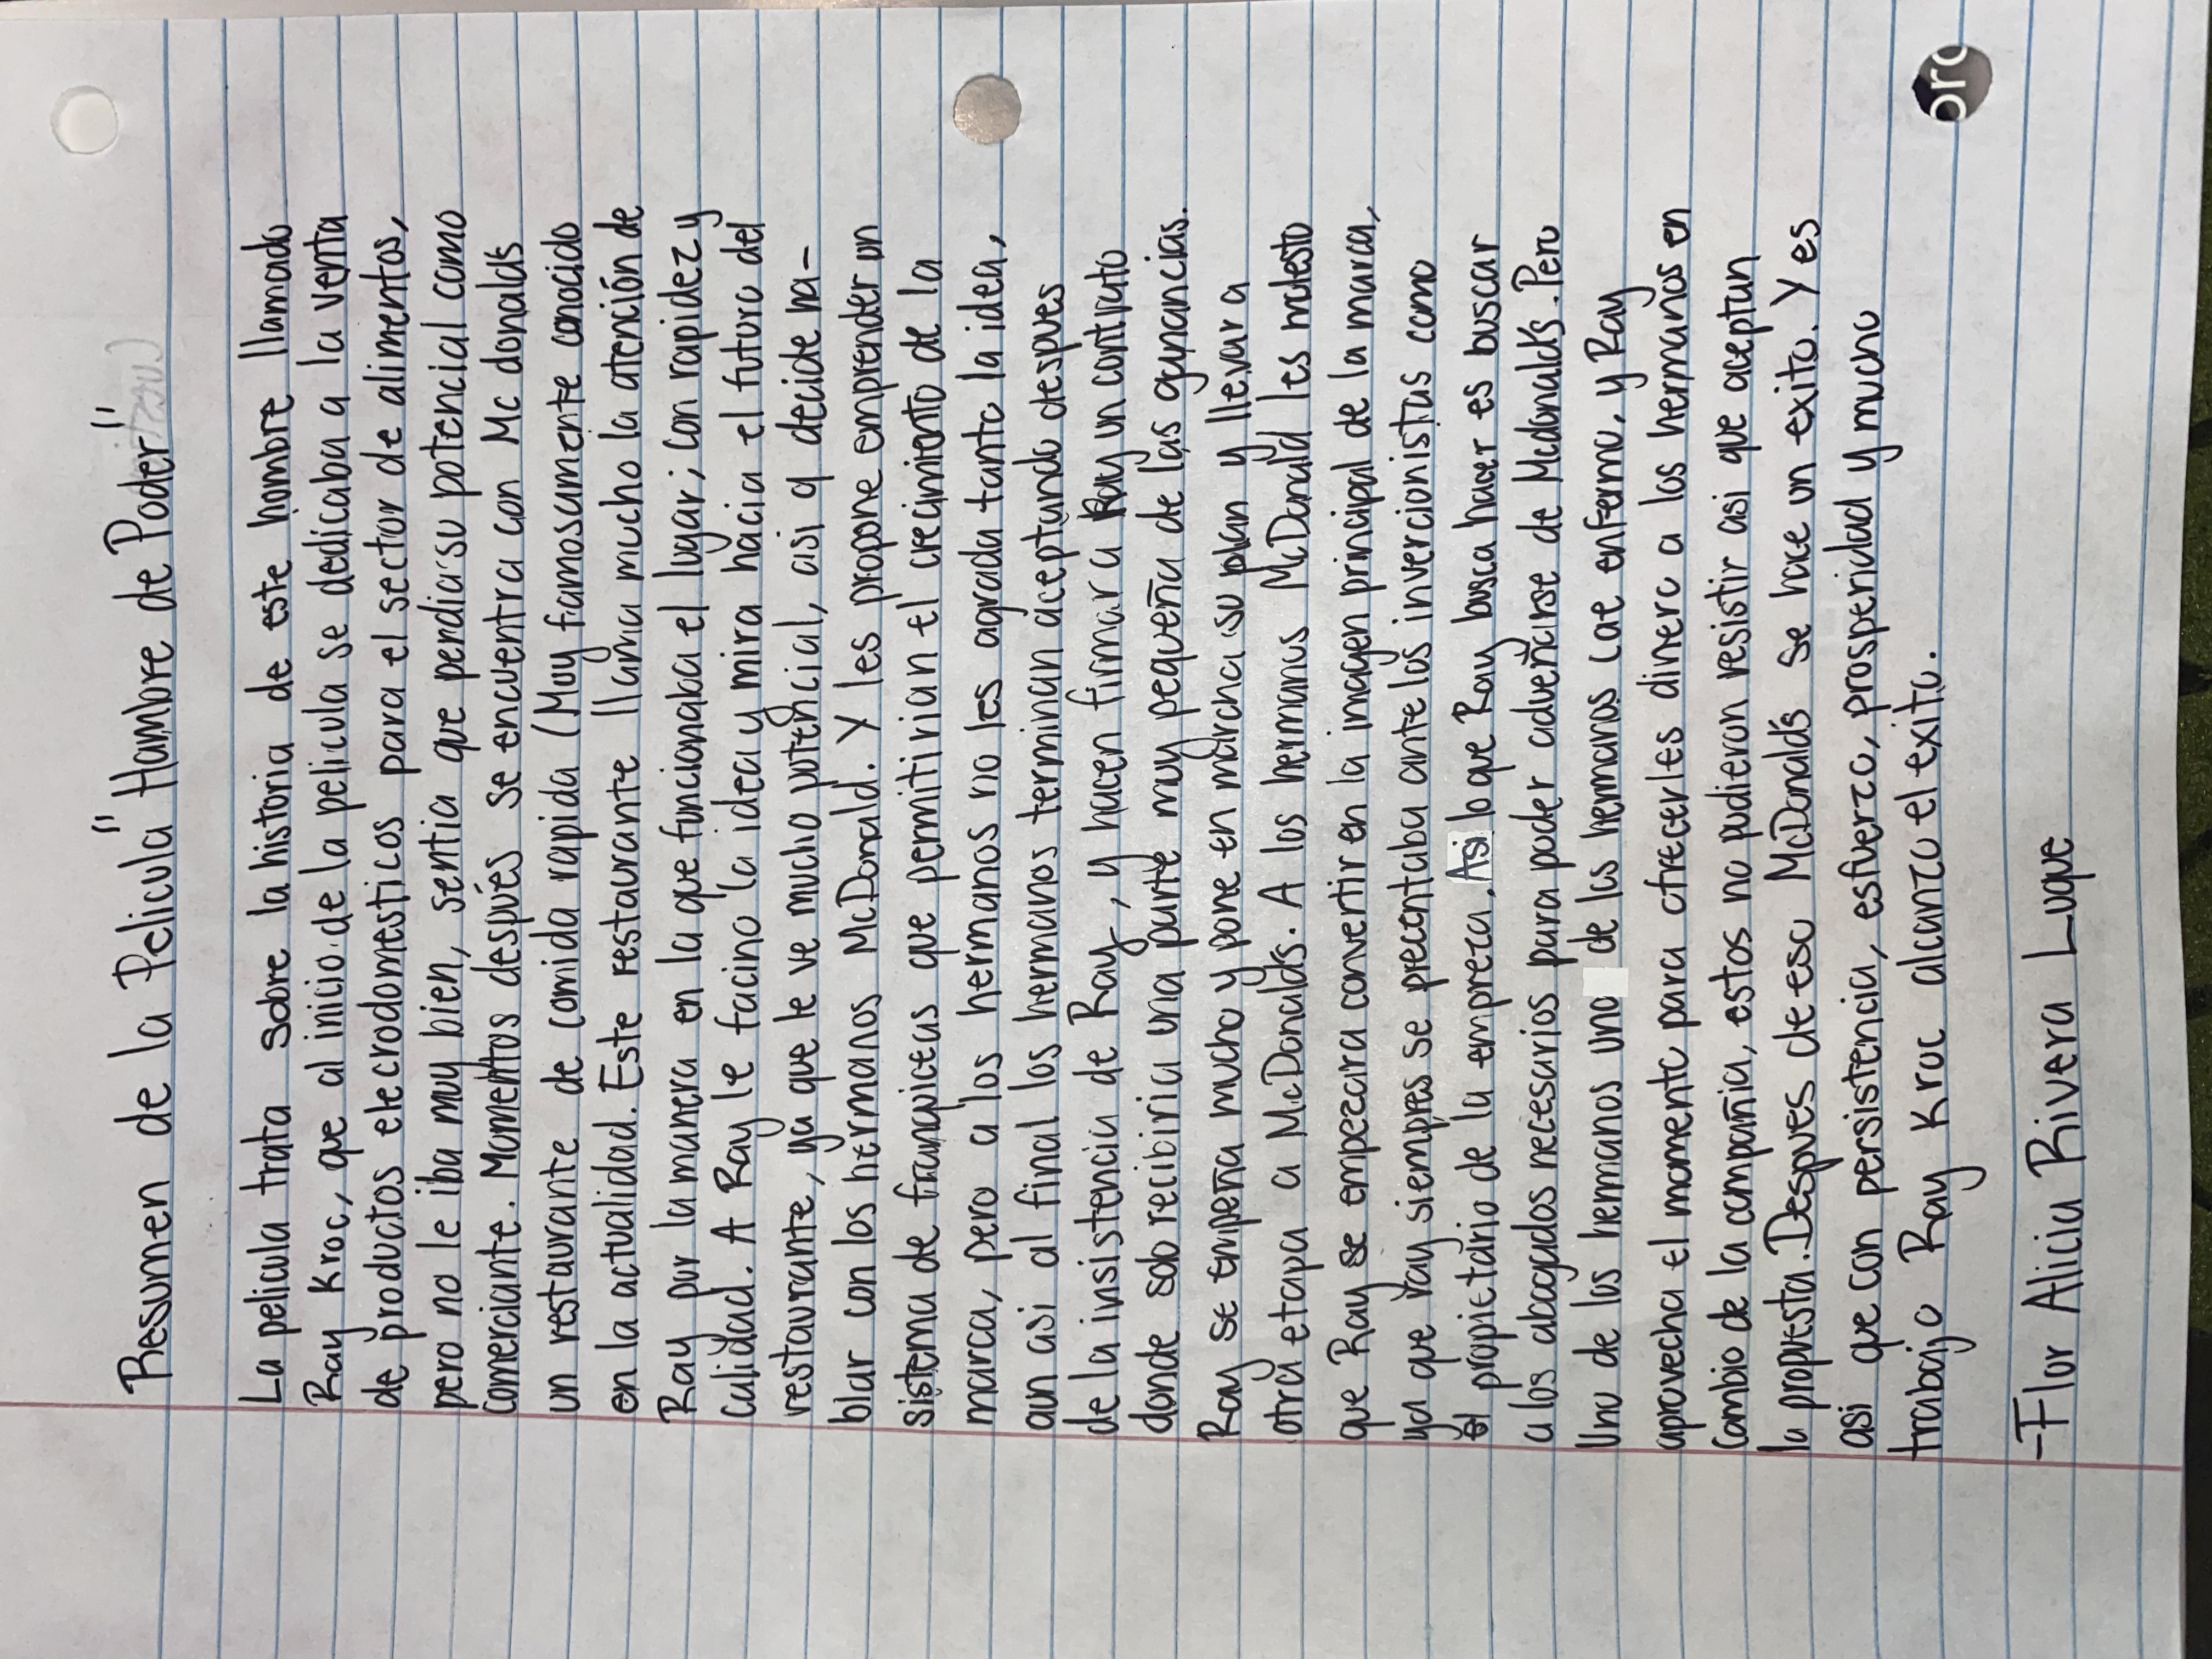 Resumen de la Pelicula "Hambre de Poder"
La pelicula trata sobre la historia de este hombre llamado
Ray Kroc, que al inicio de la pelicula se dedicaba a la venta
de productos elecrodomesticos para el sector de alimentos,
pero no le iba muy bien, sentia que perdia su potencial como
comerciante. Momentos después se encuentra con Mc donalds
un restaurante de comida rapida (Muy famosamente conocido
en la actualidad. Este restaurante llama mucho la atención de
Ray por la manera en la que funcionaba el lugar; con rapidez y
calidad. A Ray le facino la idea y mira hacia el futuro del
restaurante, ya que le ve mucho potencial, asi q decide ha-
blar con los hermanos McDonald. Y les propone emprender un
sistema de franquiceas que permitirian el crecimiento de la
marca, pero a los hermanos no les agrada tanto la idea,
aun asi al final los hermanos terminan aceptando despues
de la insistencia de Ray, y hacen firmar a Ray un contrato
donde solo recibiria una parte muy pequeña de las ganancias.
Ray se empeña mucho y pone en marcha su plan y llevar a
otra etapa a McDonalds. A los hermanos McDonald les molesto
que Ray se empezara convertir en la imagen principal de la marca,
ya que ray siempres se precentaba ante los invercionistas como
el propietario de la empreza. Asi lo que Ray busca hacer es buscar
a los abogados necesarios para poder adueñarse de Mcdonalds. Pero
Uno de los hermanos uno de los hermanos cae enfermo, y Ray
aprovecha el momento para ofrecerles dinero a los hermanos en
Cambio de la compañia, estos no pudieron resistir asi que aceptan
la propuesta. Despues de eso McDonald's se hace un exito. Y es
asi que con persistencia, esfuerzo, prosperidad y mucho
trabajo Ray Kroc alcanzo el exito.
-Flor Alicia Rivera Luque